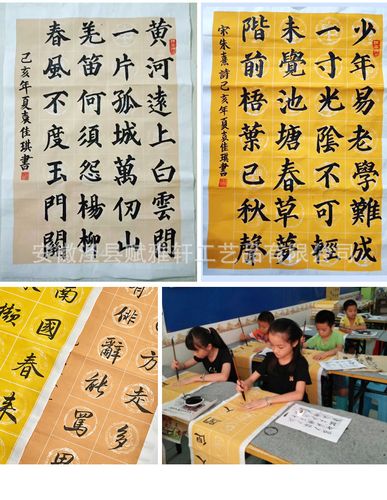 黄河遠上白雲間
一片孤城萬仞山
羌笛何須怨楊柳
春風不度玉門關
己亥年夏袁佳琪書
少年易老學難成
一寸光陰不可輕
未覺池塘春草夢
階前梧葉已秋聲
宋朱熹詩己亥年夏袁佳琪書
安徽泾县赋雅轩工艺品有限公司
方走多
俳辭能罵
南國春來